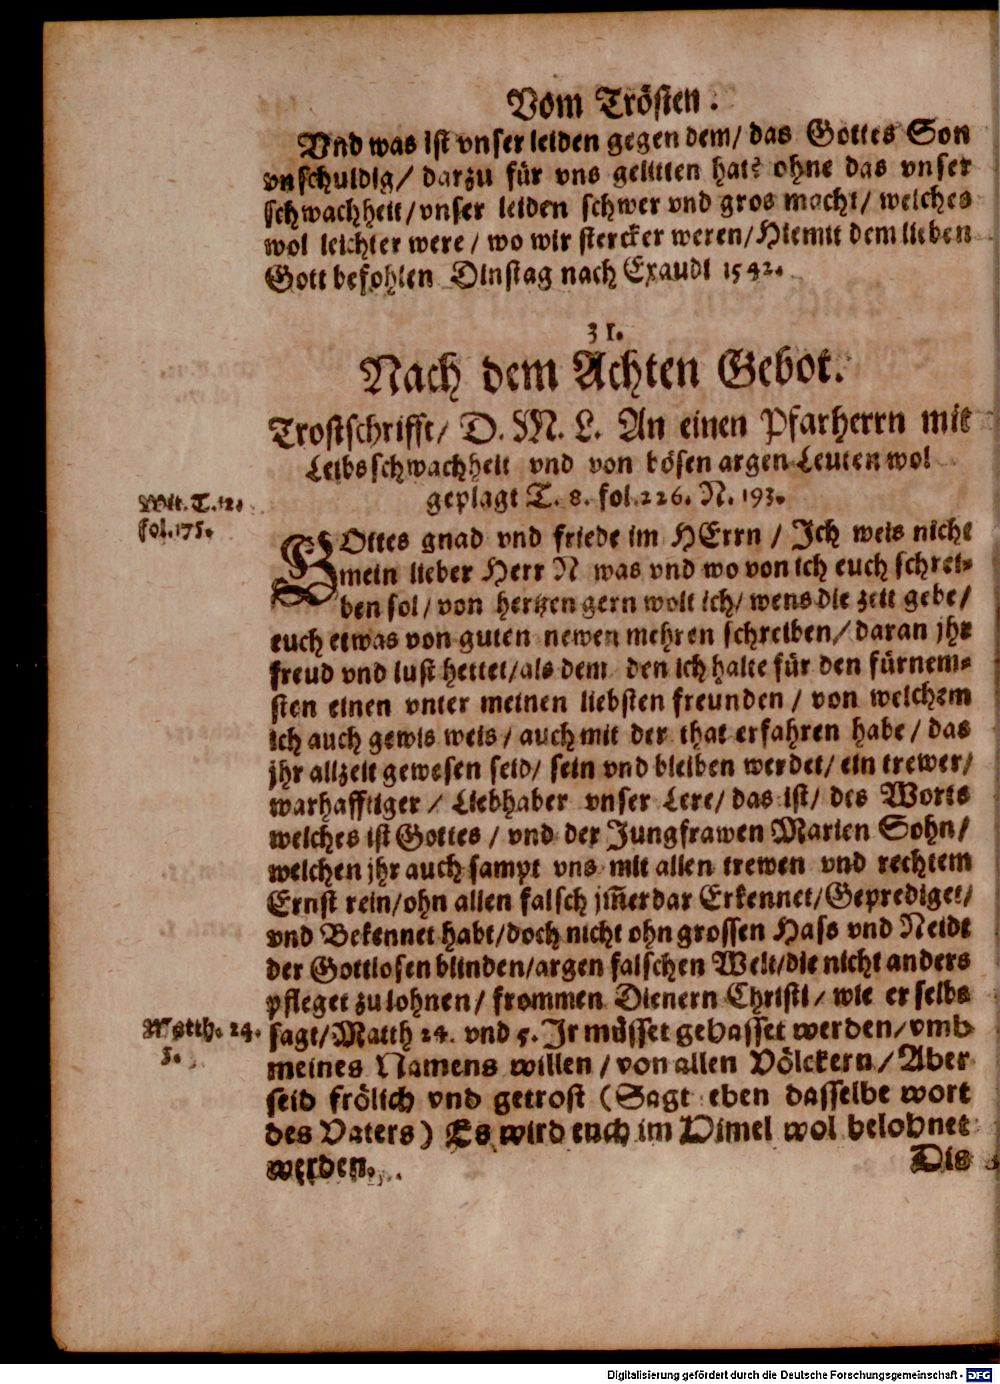 Vom Trösten.
Vnd was ist vnser leiden gegen dem/ das Gottes Son
vnschuldig/ darzu für vns gelitten hat? ohne das vnser
schwachheit/ vnser leiden schwer vnd gros macht/ welches
wol leichter were/ wo wir stercker weren/ Hiemit dem lieben
Gott befohlen Dinstag nach Exaudi 1542.
31.
Nach dem Achten Gebot.
Trostschrifft/ D. M. L. An einen Pfarherrn mit
Leibsschwachheit vnd von bösen argen Leuten wol
geplagt T. 8. fol. 226. N. 193.
Wit. T. 12.
fol. 175.
GOttes gnad vnd friede im HErrn/ Ich weis nicht
mein lieber Herr N was vnd wo von ich euch schrei-
ben sol/ von hertzen gern wolt ich/ wens die zeit gebe/
euch etwas von guten newen mehren schreiben/ daran jhr
freud vnd lust hettet/ als dem den ich halte für den fürnem-
sten einen vnter meinen liebsten freunden/ von welchem
ich auch gewis weis/ auch mit der that erfahren habe/ das
jhr allzeit gewesen seid/ sein vnd bleiben werdet/ ein trewer/
warhafftiger/ Liebhaber vnser Lere/ das ist/ des Worts
welches ist Gottes/ vnd der Jungfrawen Marien Sohn/
welchen jhr auch sampt vns mit allen trewen vnd rechtem
Ernst rein/ ohn allen falsch jm̃erdar Erkennet/ Geprediget/
vnd Bekennet habt/ doch nicht ohn grossen Hass vnd Neidt
der Gottlosen blinden/ argen falschen Welt/ die nicht anders
pfleget zu lohnen/ frommen Dienern Christi/ wie er selbs
Matth. 24.
5.
sagt/ Matth 24. vnd 5. Ir müsset gehasset werden/ vmb
meines Namens willen/ von allen Völckern/ Aber
seid frölich vnd getrost (Sagt eben dasselbe wort
des Vaters) Es wird euch im Himel wol belohnet
werden.
Dis
Digitalisierung gefördert durch die Deutsche Forschungsgemeinschaft - DFG